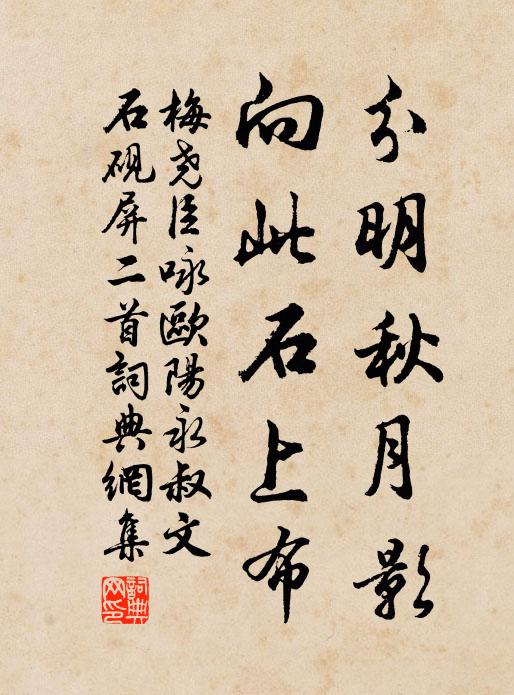 分明秋月影
向此石上布
梅堯臣咏歐陽永叔文
石硯屏二首詞典網集
詞典网印